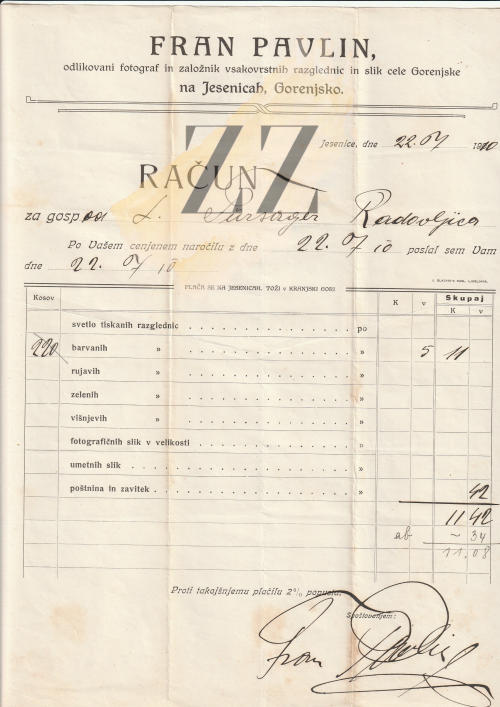 FRAN PAVLIN,
odlikovani fotograf in založnik vsakovrstnih razglednic in slik cele Gorenjske
na Jesenicah, Gorenjsko.
ZZ
Jesenice, dne 22. 07 1910
RAČUN
za gospod L. Radovljica
Po Vašem cenjenem naročilu z dne 22. 07 10 poslal sem Vam
dne 22. 07 10
PLAČA SE NA JESENICAH. TOŽI V KRANJSKI GORI
Kosov K v Skupaj
K v
svetlo tiskanih razglednic po
220 barvanih » » 5 11
rujavih » »
zelenih » »
višnjevih » »
fotografičnih slik v velikosti »
umetnih slik »
poštnina in zavitek » 42
11 42
ab ~ 34
11.08
Proti takojšnjemu plačilu 2% popusta.
Spoštovanjem:
Fran Pavlin